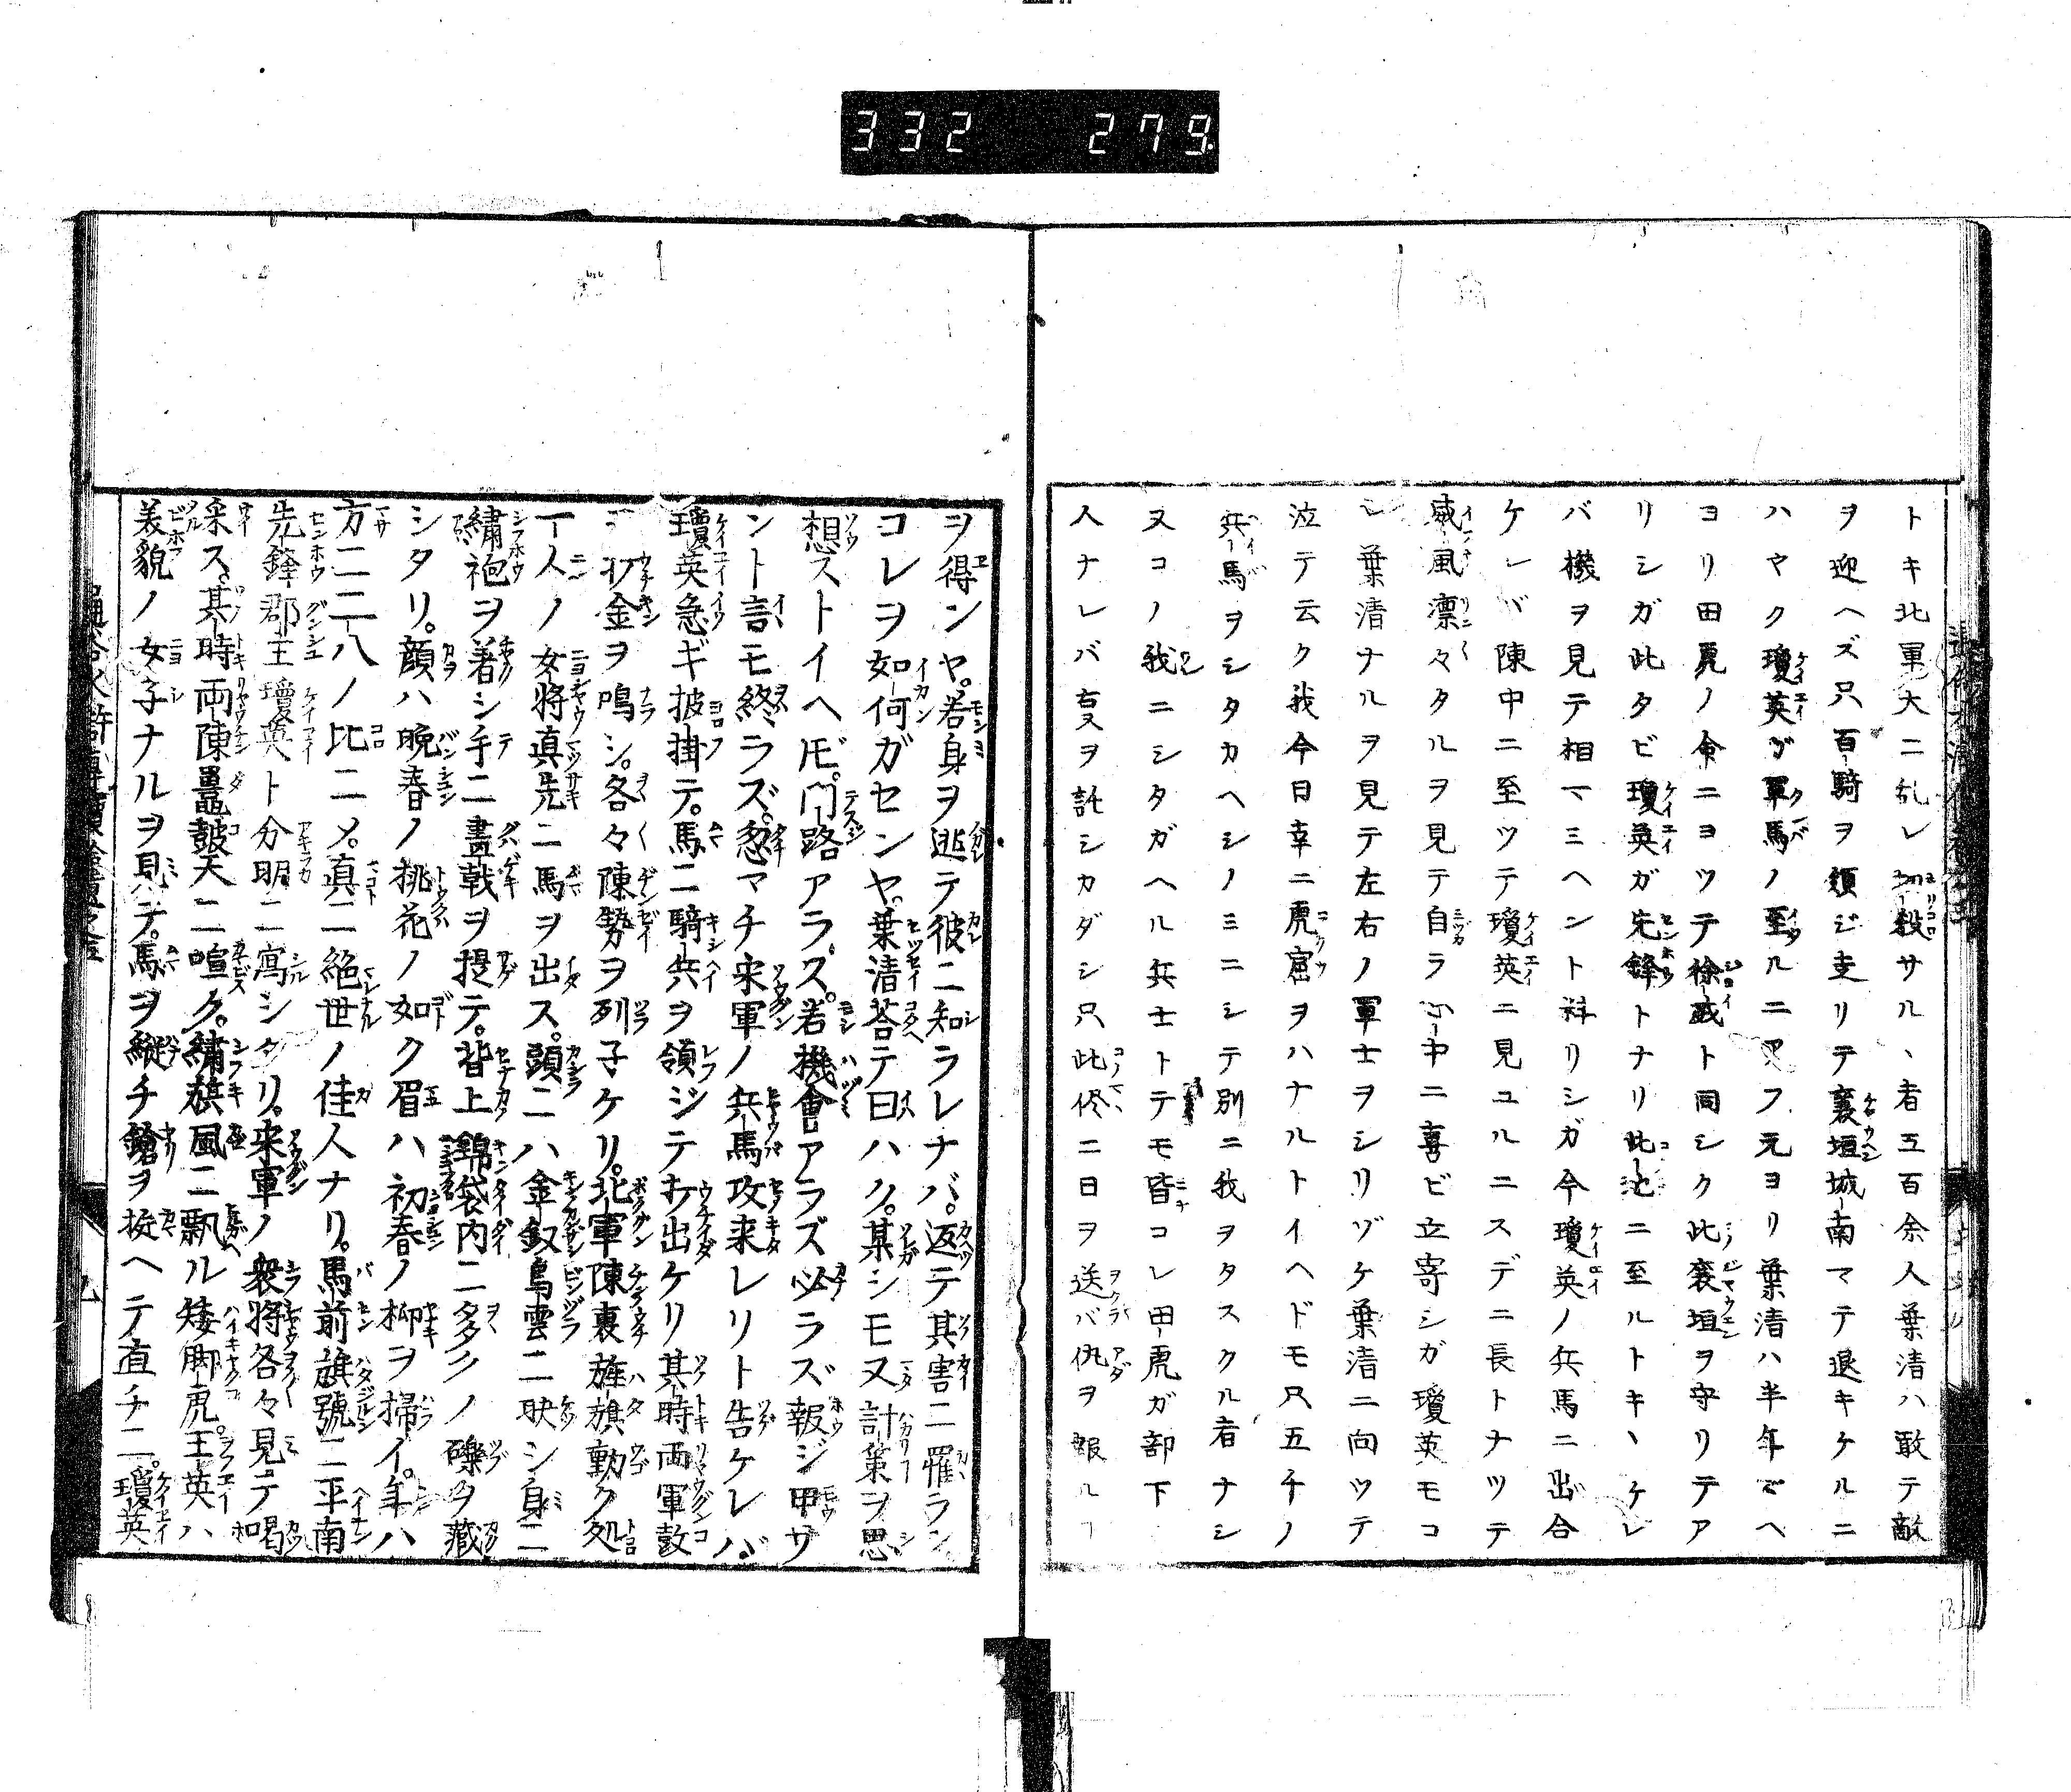 332 279
トキ北軍大ニ乱レ殺サルヽ者五百余人葉清ハ敢テ敵
ヲ迎ヘズ只百騎ヲ領ジ走リテ襄垣城南マテ退キケルニ
ハヤク瓊英ガ軍馬ノ至ルニアフ元ヨリ葉清ハ半年マヘ
ヨリ田虎ノ命ニヨツテ徐威ト同シク此襄垣ヲ守リテア
リシガ此タビ瓊英ガ先鋒トナリ此ニ至ルトキヽケレ
バ機ヲ見テ相マミヘント料リシガ今瓊英ノ兵馬ニ出合
ケレバ陳中ニ至ツテ瓊英ニ見ユルニスデニ長トナツテ
威風凛々タルヲ見テ自ラ心中ニ喜ビ立寄シガ瓊英モコ
シ葉清ナルヲ見テ左右ノ軍士ヲシリゾケ葉清ニ向ツテ
泣テ云ク我今日幸ニ虎窟ヲハナルトイヘドモ只五千ノ
兵馬ヲシタカヘシノミニシテ別ニ我ヲタスクル者ナシ
又コノ我ニシタガヘル兵士トテモ皆コレ田虎ガ部下
人ナレバ又ヲ託シカダシ只此侭ニ日ヲ送バ仇ヲ報ル
ヲ得ンヤ。若身ヲ逃テ彼ニ知ラレナバ。返テ其害ニ罹ラン
コレヲ如何ガセンヤ。葉清荅テ曰ハク。某シモ又計策ヲ思
想ストイヘドモ。門路アラズ。若機會アラズ必ラズ報ジ申サ
ント言モ終ラズ。忽マチ宋軍ノ兵馬攻来レリト告ケレバ
瓊英急ギ披掛テ。馬ニ騎兵ヲ領ジテ打出ケリ其時両軍鼓
ヲ打金ヲ鳴シ。各々陳勢ヲ列子ケリ。北軍陳裏旌旗動ク処
一人ノ女将真先ニ馬ヲ出ス。頭ニハ金釵烏雲ニ映シ身ニ
繍袍ヲ着シ手ニ畫戟ヲ提テ。背上錦袋内ニ多クノ礫ヲ藏
シタリ。顔ハ晩春ノ桃花ノ如ク眉ハ初春ノ柳ヲ掃イ。年ハ
方ニ二八ノ比ニメ。真ニ絶世ノ佳人ナリ。馬前旗號ニ平南
先鋒郡主瓊英ト分明ニ寫シタリ。宋軍ノ衆将各々見テ喝
采ス。其時両陳鼉皷天ニ喧ク。繍旗風ニ飄ル矮脚虎。王英ハ
美貌ノ女子ナルヲ見テ。馬ヲ縦チ鎗ヲ捻ヘテ直チニ。瓊英